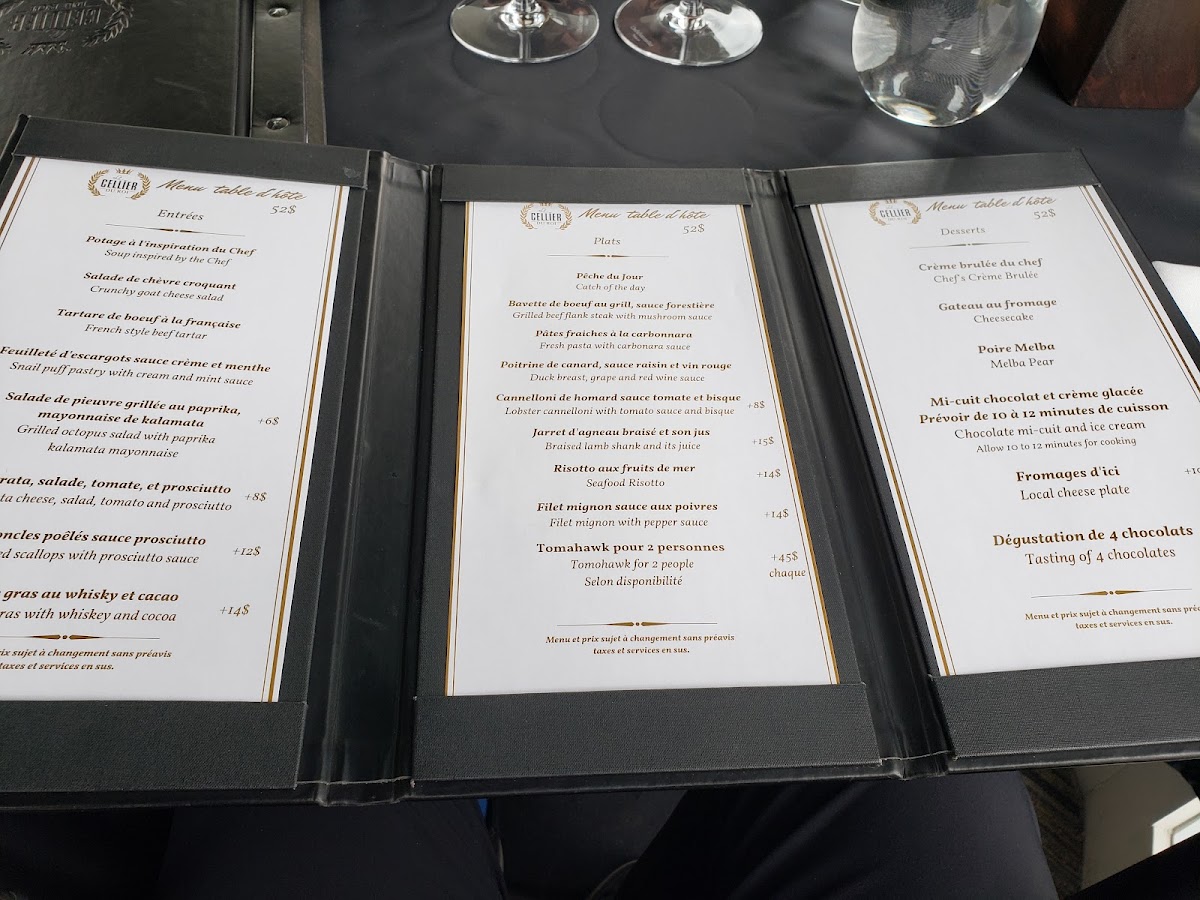 CELLIER
DU ROI
Menu table d'hôte
52$
Entrées
Potage à l'inspiration du Chef
Soup inspired by the Chef
Salade de chèvre croquant
Crunchy goat cheese salad
Tartare de boeuf à la française
French style beef tartar
Feuilleté d'escargots sauce crème et menthe
Snail puff pastry with cream and mint sauce
Salade de pieuvre grillée au paprika,
mayonnaise de kalamata
+6$
Grilled octopus salad with paprika
kalamata mayonnaise
rata, salade, tomate, et prosciutto
+8$
ta cheese, salad, tomato and prosciutto
oncles poêlés sauce prosciutto
+12$
ed scallops with prosciutto sauce
gras au whisky et cacao
+14$
ras with whiskey and cocoa
sujet à changement sans préavis
taxes et services en sus.
CELLIER
DU ROI
Menu table d'hôte
52$
Plats
Pêche du Jour
Catch of the day
Bavette de boeuf au grill, sauce forestière
Grilled beef flank steak with mushroom sauce
Pâtes fraiches à la carbonnara
Fresh pasta with carbonara sauce
Poitrine de canard, sauce raisin et vin rouge
Duck breast, grape and red wine sauce
Cannelloni de homard sauce tomate et bisque
+8$
Lobster cannelloni with tomato sauce and bisque
Jarret d'agneau braisé et son jus
+15$
Braised lamb shank and its juice
Risotto aux fruits de mer
+14$
Seafood Risotto
Filet mignon sauce aux poivres
+14$
Filet mignon with pepper sauce
Tomahawk pour 2 personnes
+45$
Tomohawk for 2 people
chaque
Selon disponibilité
Menu et prix sujet à changement sans préavis
taxes et services en sus.
CELLIER
DU ROI
Menu table d'hôte
52$
Desserts
Crème brulée du chef
Chef's Crème Brulée
Gateau au fromage
Cheesecake
Poire Melba
Melba Pear
Mi-cuit chocolat et crème glacée
Prévoir de 10 à 12 minutes de cuisson
Chocolate mi-cuit and ice cream
Allow 10 to 12 minutes for cooking
Fromages d'ici
Local cheese plate
Dégustation de 4 chocolats
Tasting of 4 chocolates
Menu et prix sujet à changement sans
taxes et services en sus.